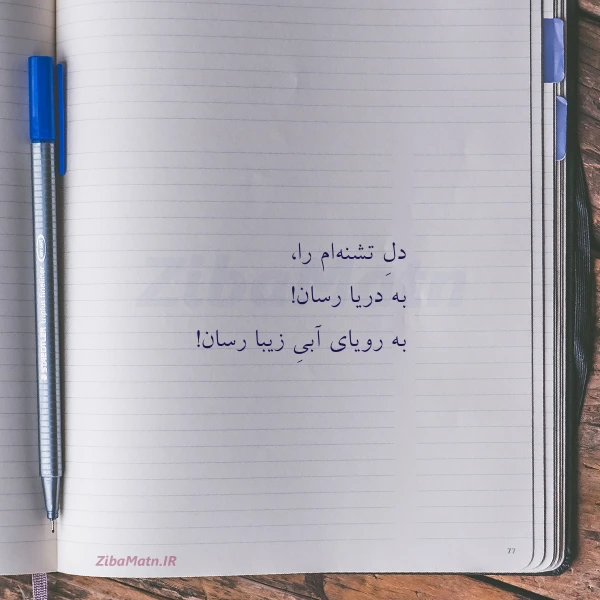 دلِ تشنه‌ام را،
به دریا رسان!
به رویای آبیِ زیبا رسان!
ZibaMatn
ZibaMatn.IR
77